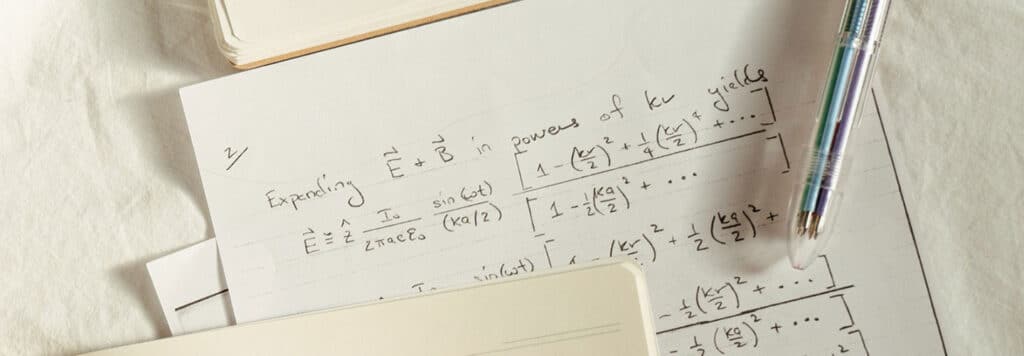 2/
Expending E⃗ + B⃗ in powers of kr yields
E⃗ ≅ ẑ I₀/(2πacε₀) sin(ωt)/(ka/2) [1 - (kr/2)² + 1/4(kr/2)⁴ + ...]/[1 - 1/2(ka/2)² + ...]
I₀ sin(ωt) [1 - (kr/2)² + 1/2(ka/2)² +
- 1/2(kr/2)² + ...]
- 1/2(ka/2)² + ...]